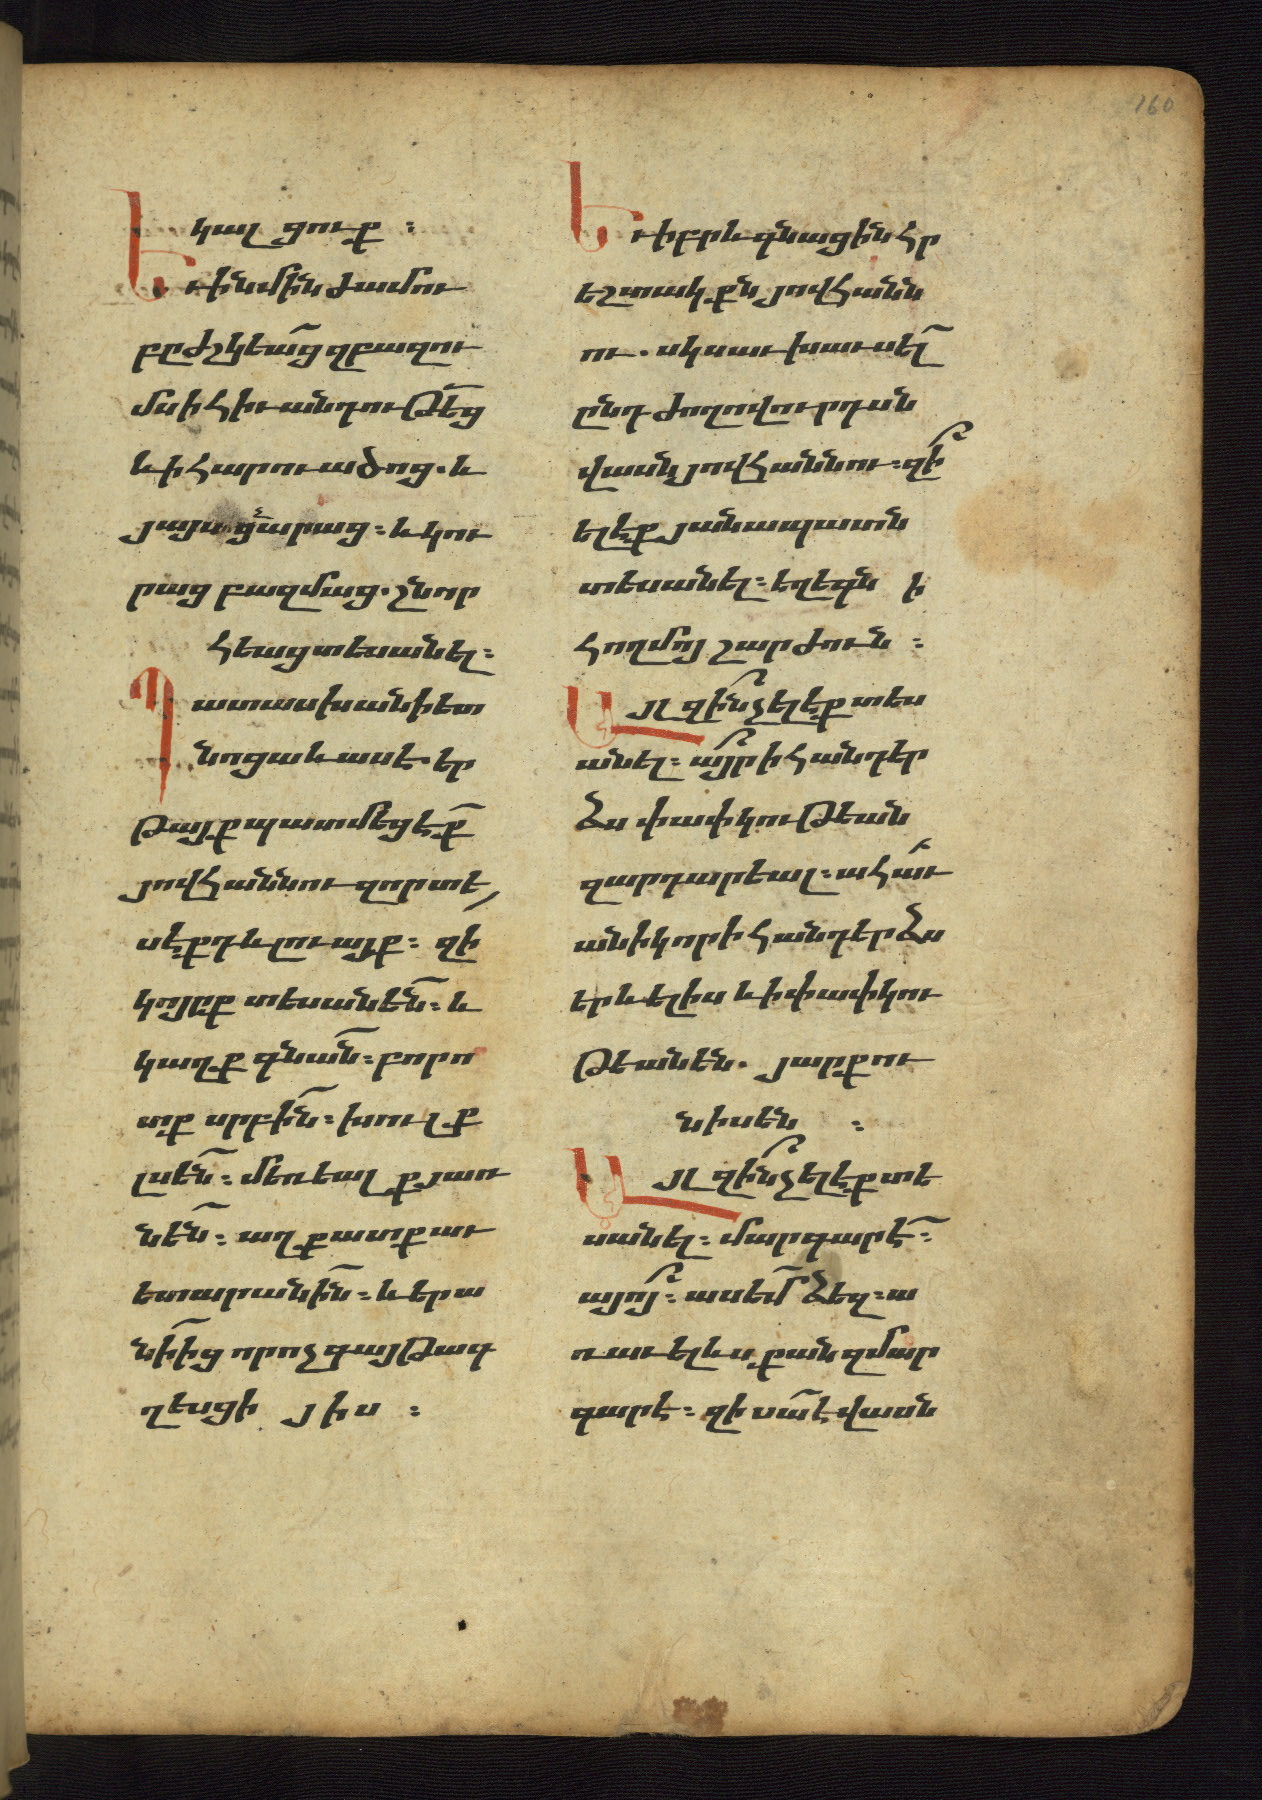 160
կալցուք ։
Եւ ինմին ժամու
բըժշկեա՜ց զբազու
մս ի հիւանդութե՜ց
և ի հարուածոց. և
յայսոց չարաց ։ և կու
րաց բազմաց. շնոր
հեաց տեսանել ։
Պատասխանի ետ
նոցա և ասէ. եր
թայք պատմեցէք՜
յովհաննու զոր տե
սէքդ և լուայք ։ զի
կոյրք տեսանեն՜ ։ և
կաղք գնան՜ ։ բորո
տք սրբին՜ ։ խուլք
լսեն՜ ։ մեռեալք յառ
նեն՜ ։ աղքատք աւ
ետարանին՜ ։ և երա
նի՜ իցէ որ ոչ գայթագ
ղեսցի յիս ։
Եւ իբրև գնացին հր
եշտակքն յովհանն
ու. սկսաւ խաւսել՜
ընդ ժողովուրդսն
վասն յովհաննու ։ զի՞
ելէք յանապատն
տեսանել ։ եղեգն ի
հողմոյ շարժուն ։
Այլ զինչ՞ ելէք տես
անել ։ այր՞ ի հանդեր
ձս փափկութեան
զարդարեալ ։ ահաւ
անիկ որ ի հանդերձս
երևելիս և ի փափկու
թեանեն. յարքու
նիսեն ։
Այլ զինչ՞ ելէք տե
սանել ։ մարգարէ՜ ։
այո՞յ ։ ասեմ՜ ձեզ ։ ա
ռաւել ևս քան զմար
գարէ ։ զի սա՜ է վասն